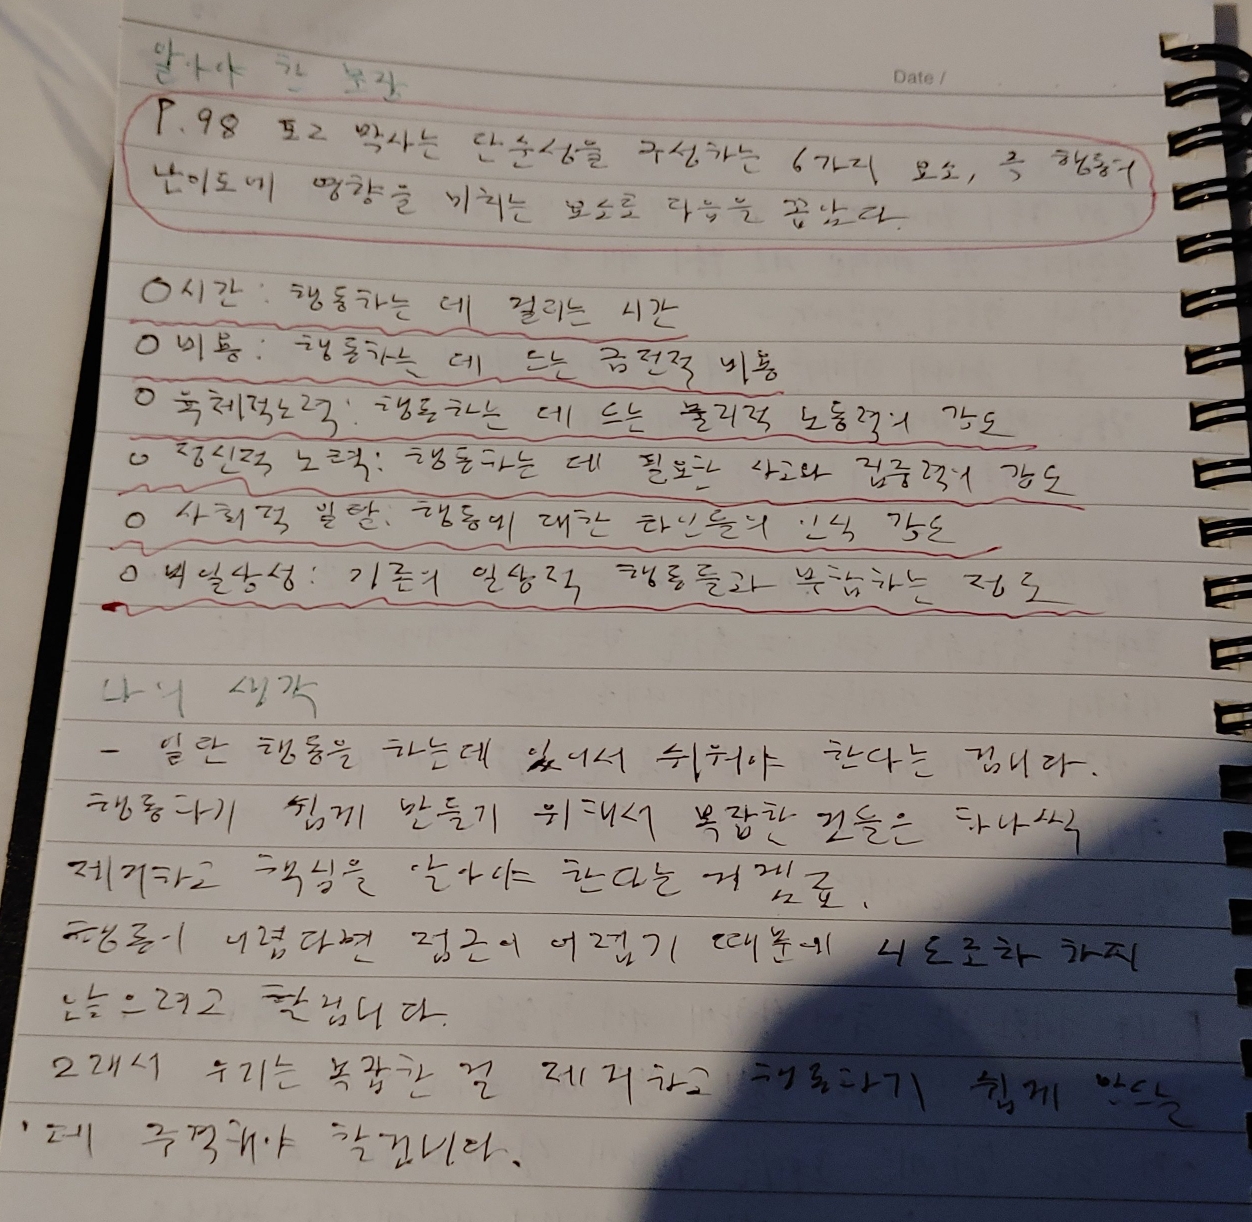 알아야 할 보람
Date /
P.98 포그 박사는 단순성을 구성하는 6가지 요소, 즉 행동의
난이도에 영향을 미치는 요소로 다음을 꼽았다.
O 시간 : 행동하는 데 걸리는 시간
O 비용 : 행동하는 데 드는 금전적 비용
O 육체적노력 : 행동하는 데 드는 물리적 노동력의 강도
O 정신적 노력 : 행동하는 데 필요한 사고와 집중력의 강도
O 사회적 일탈 : 행동에 대한 타인들의 인식 강도
O 비일상성 : 기존의 일상적 행동들과 부합하는 정도
나의 생각
- 일단 행동을 하는데 있어서 쉬워야 한다는 겁니다.
행동하기 쉽게 만들기 위해서 복잡한 것들은 하나씩
제거하고 핵심을 알아야 한다는 거겠죠.
행동이 어렵다면 접근이 어렵기 때문에 시도조차 하지
않으려고 할겁니다.
그래서 우리는 복잡한 걸 제거하고 행동하기 쉽게 만드는
데 주력해야 할겁니다.